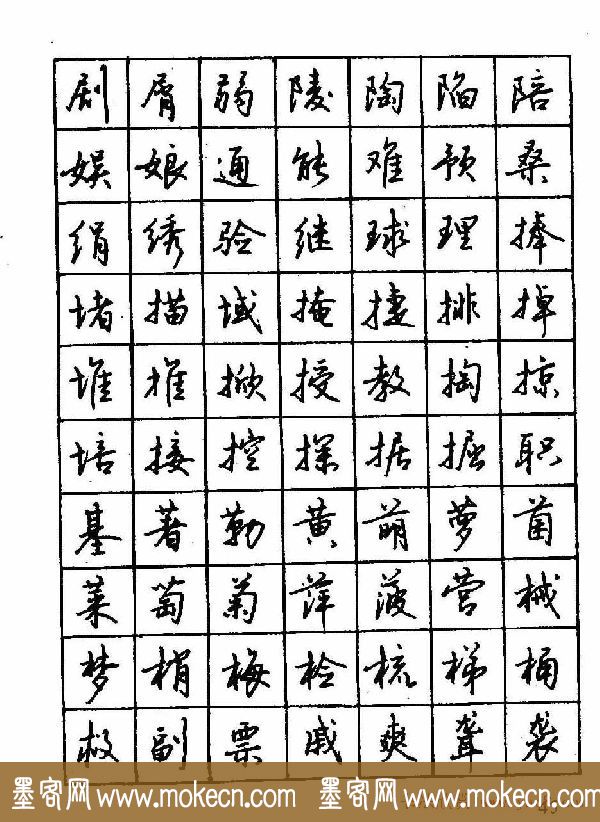 剧屑弱陵陶陷陪
娱娘通能难预桑
绢绣验继球理捧
堵描域掩捷排掉
堆推掀授教掏掠
培接控探据掘职
基著勒黄萌萝菌
菜萄菊萍菠营械
梦梢梅检梳梯桶
救副票戚爽聋袭
墨客网 www.mokecn.com 墨客网 www.mokecn.com